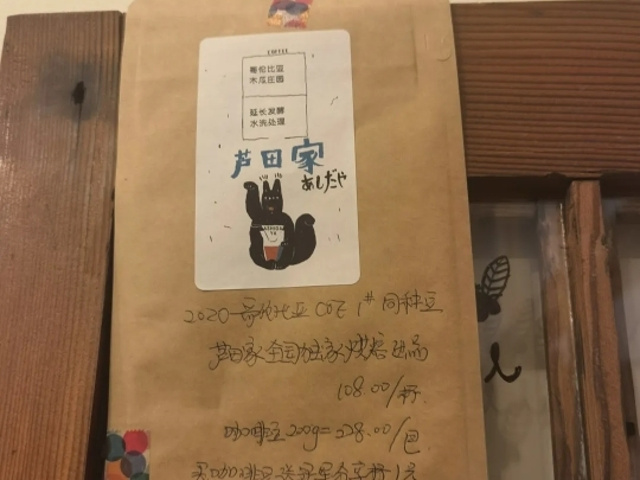 哥伦比亚
木瓜庄园
延长发酵
水洗处理
芦田家
あしだや
2020 哥伦比亚 COE 1# 同种豆
芦田家全国独家烘焙出品
108.00/杯
咖啡豆200g=228.00/包
买咖啡豆送